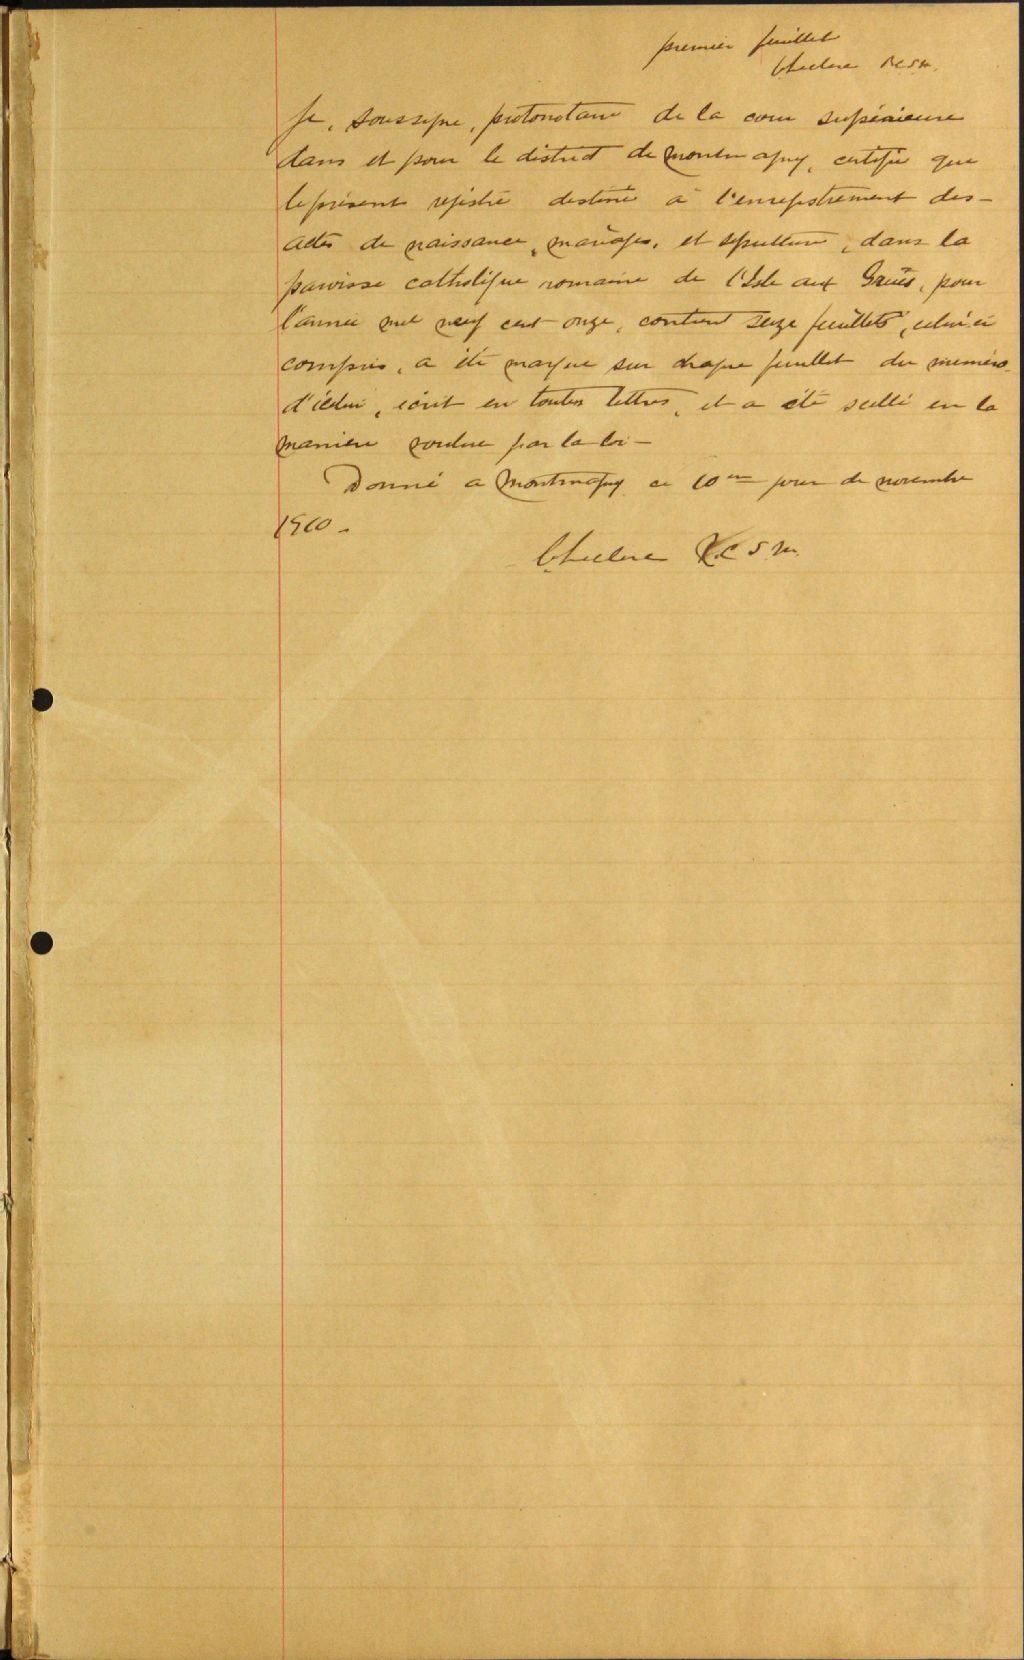 premier feuillet
Leclerc P.C.S.M.
Je, soussigné, protonotaire de la cour supérieure
dans et pour le district de Montmagny, certifie que
le présent registre destiné à l'enregistrement des
actes de naissance, mariages, et sépulture, dans la
paroisse catholique romaine de l'Isle aux Grues, pour
l'année mil neuf cent onze, contient seize feuillets, celui-ci
compris, a été marqué sur chaque feuillet du numéro
d'icelui, écrit en toutes lettres, et a été scellé en la
manière voulue par la loi—
Donné a Montmagny ce 10me jour de novembre
1910—
Leclerc P.C.S.M.